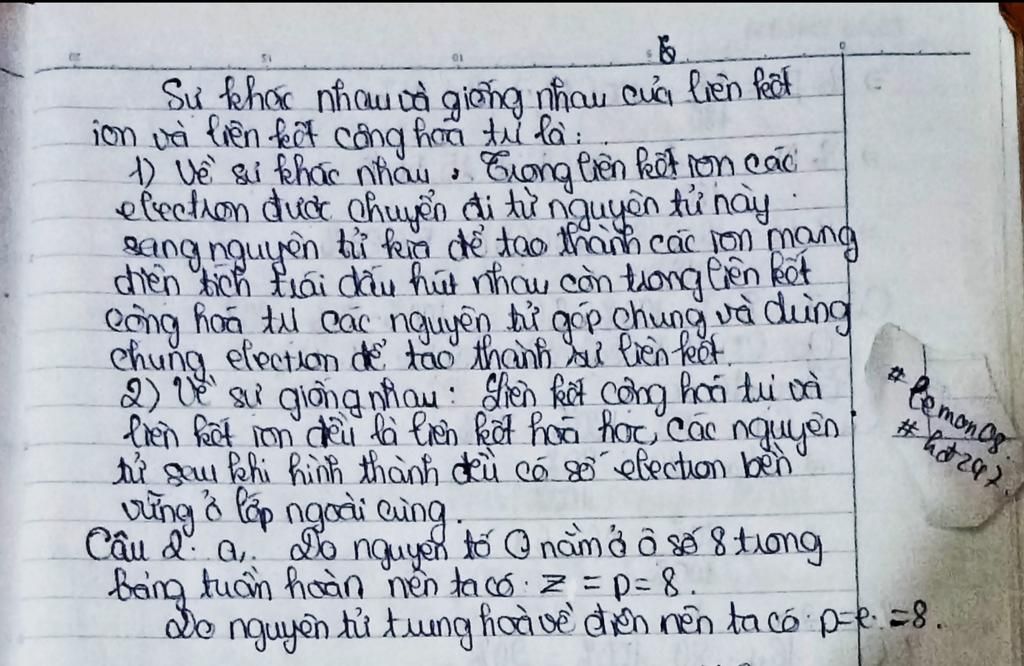 Sự khác nhau và giống nhau của liên kết
ion và liên kết cộng hoá trị là:
1) Về sự khác nhau, Trong liên kết ion các
electron được chuyển đi từ nguyên tử này
sang nguyên tử kia để tạo thành các ion mang
điện tích trái dấu hút nhau còn trong liên kết
cộng hoá trị các nguyên tử góp chung và dùng
chung electron để tạo thành sự liên kết.
2) Về sự giống nhau: Liên kết cộng hoá trị và
liên kết ion đều là liên kết hoá học, các nguyên
tử sau khi hình thành đều có số electron bền
vững ở lớp ngoài cùng.
Câu 2: a, Do nguyên tố O nằm ở ô số 8 trong
bảng tuần hoàn nên ta có: Z = P = 8.
Do nguyên tử trung hoà về điện nên ta có: p=e=8.
#lemon08.
#hdt297.